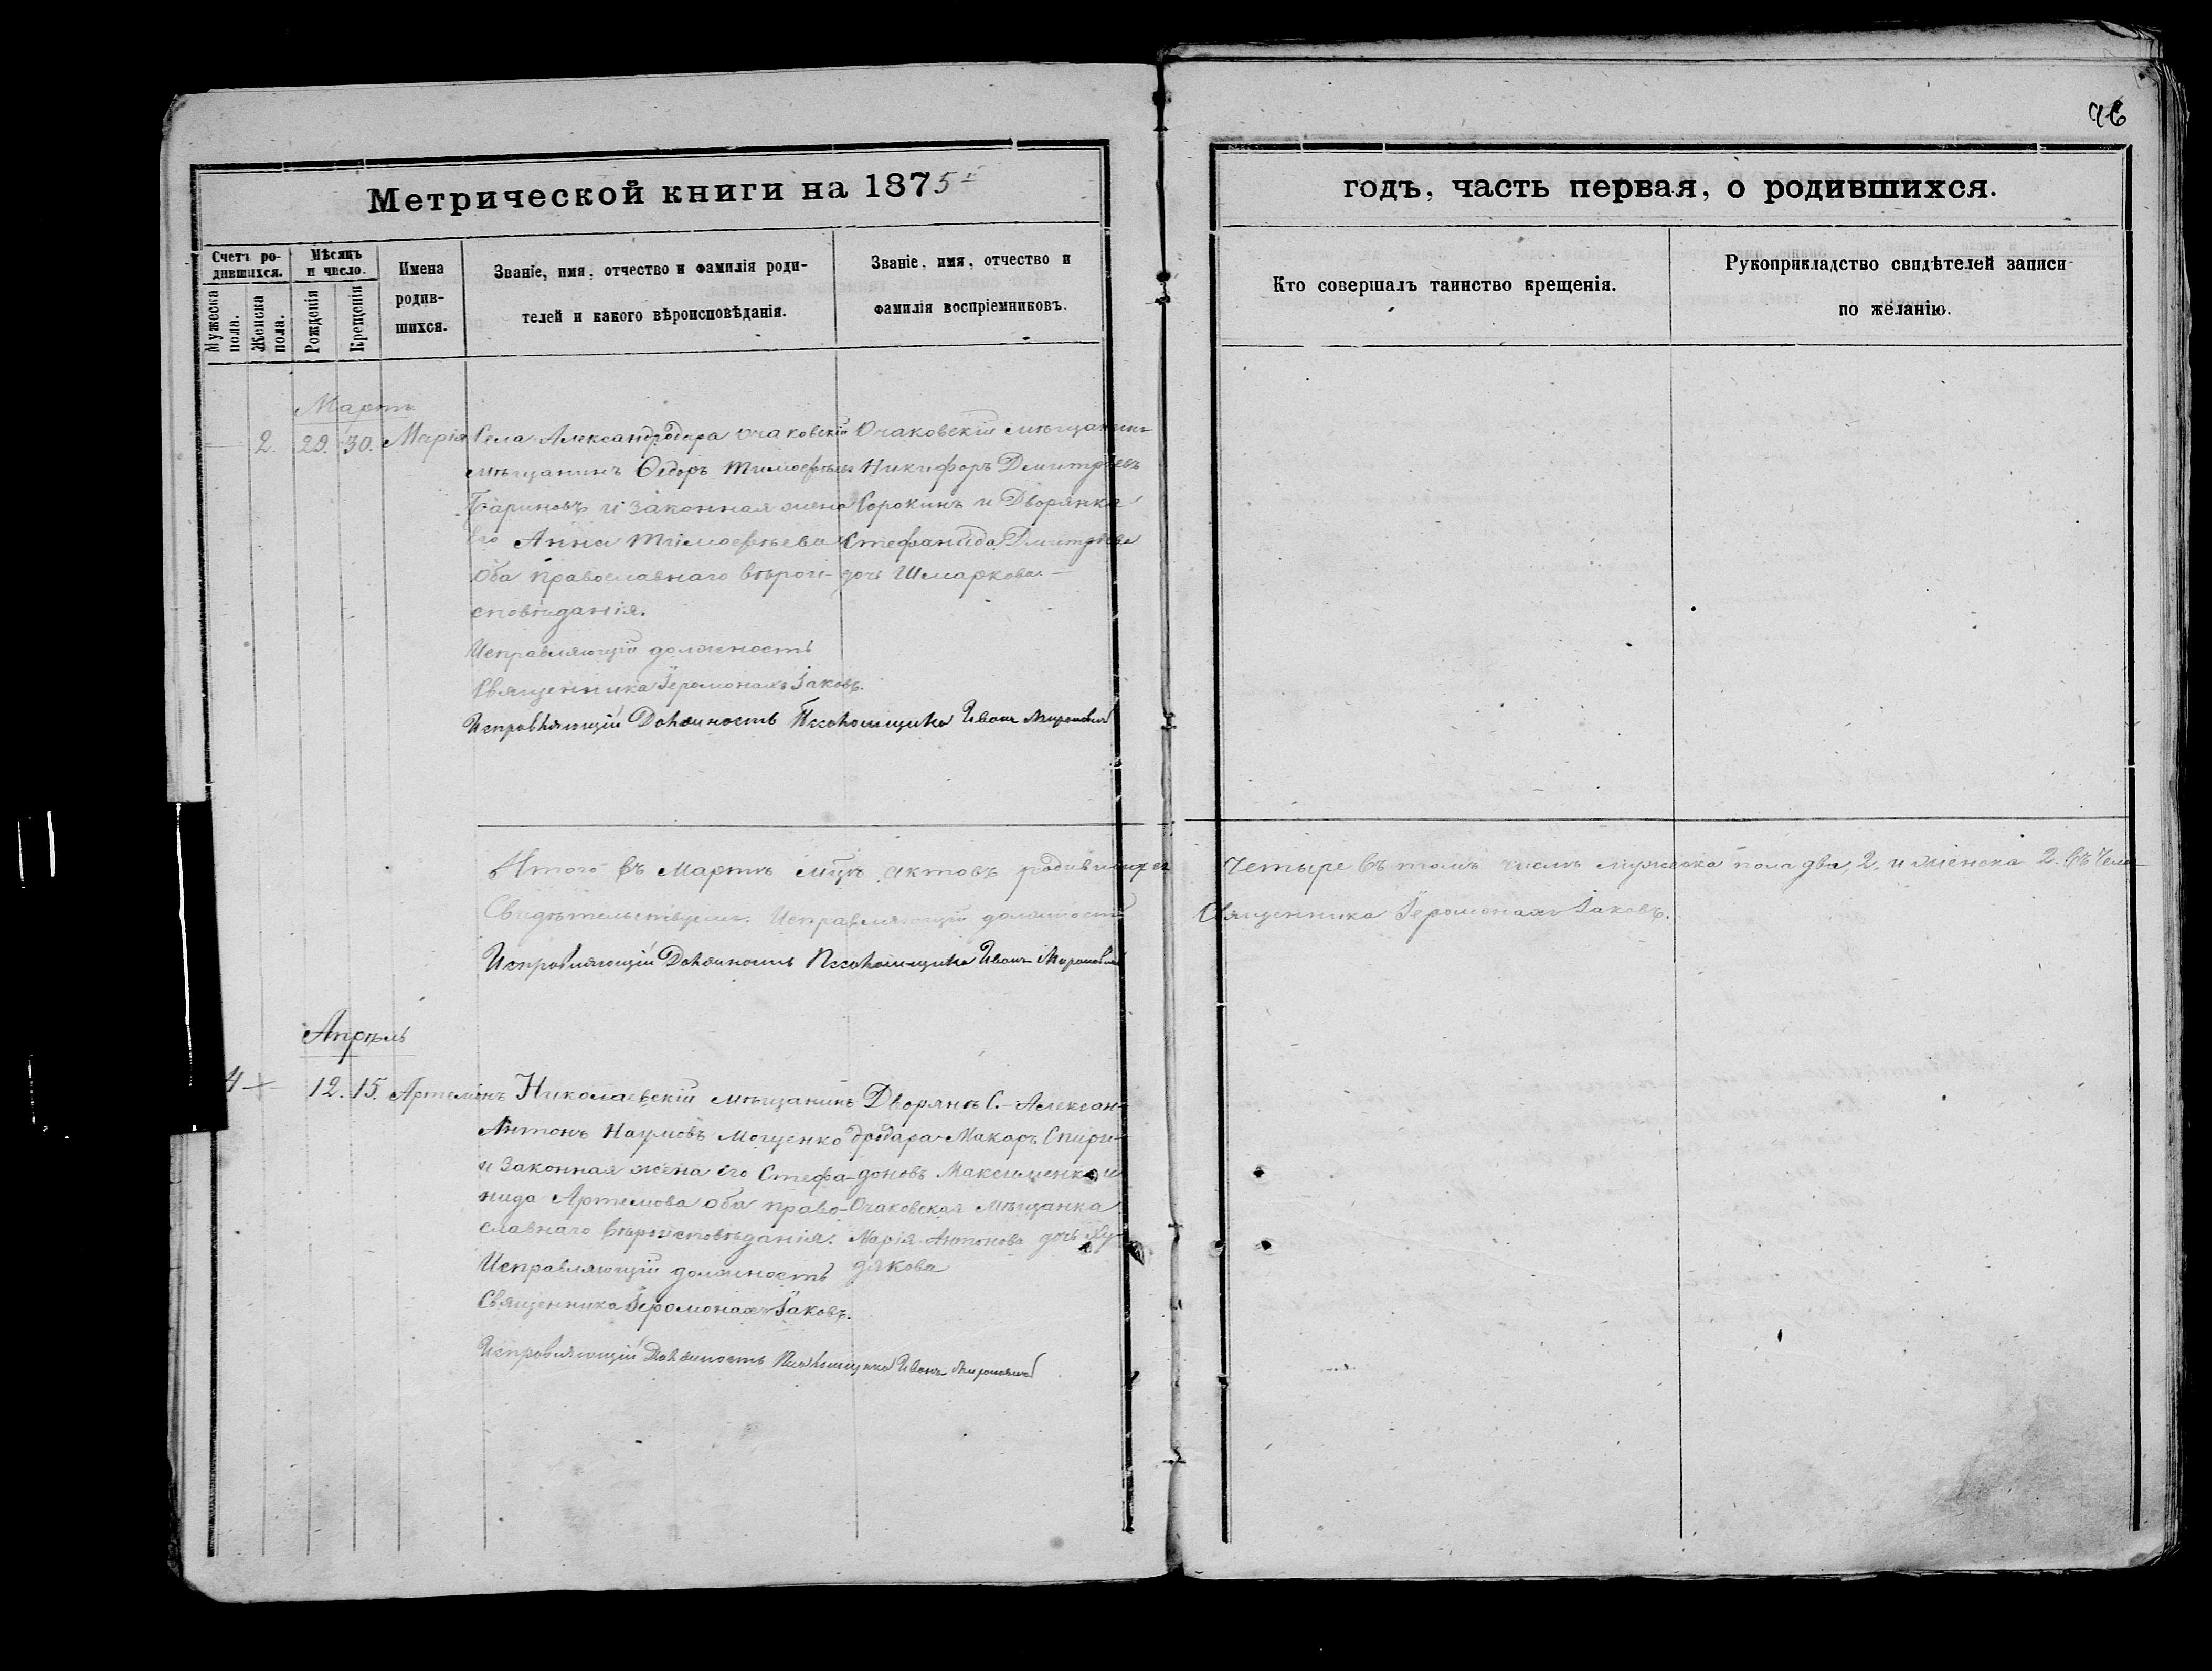 96
Метрической книги на 1875й
годъ, часть первая, о родившихся.
Счетъ ро-
дившихся.
Мужеска
пола.
Женска
пола.
Мѣсяцъ
и число.
Рожденія
Крещенія
Имена
родив-
шихся.
Званіе, имя, отчество и фамилія роди-
телей и какого вѣроисповѣданія.
Званіе, имя, отчество и
фамилія воспріемниковъ.
Кто совершалъ таинство крещенія.
Рукоприкладство свидѣтелей записи
по желанію.
Мартъ
2. 29. 30. Марія
Села Александродара очаковскій
мѣщанинъ Ѳедоръ Тимофѣевъ
Бариновъ и законная жена
его Анна Тимофѣева
оба православнаго вѣрои-
сповѣданія.
Очаковскій мѣщанинъ
Никифоръ Дмитріевъ
Сорокинъ и Дворянка
Стефанида Дмитріева
дочь Шмаркова
Исправляющій должность
Священника Іеромонахъ Іаковъ.
Исправляющій Должность Псаломщика Иванъ
Итого въ Мартѣ мцѣ актовъ родившихся
четыре въ томъ числѣ мужеска пола два, 2. и женска 2. въ чемъ
Свидѣтельствуемъ. Исправляющій должность
Священника Іеромонахъ Іаковъ.
Исправляющій Должность Псаломщика Иванъ
Апрѣль
4 — 12. 15. Артемонъ
Николаевскій мѣщанинъ
Антонъ Наумовъ Моценко
и законная жена его Стефа-
нида Артемова оба право-
славнаго вѣроисповѣданія.
Дворянъ С. Алексан-
дродара Макаръ Спири-
доновъ Максименко и
Очаковская мѣщанка
Марія Антонова дочь Ху-
дякова
Исправляющій должность
Священника Іеромонахъ Іаковъ.
Исправляющій Должность Псаломщика Иванъ